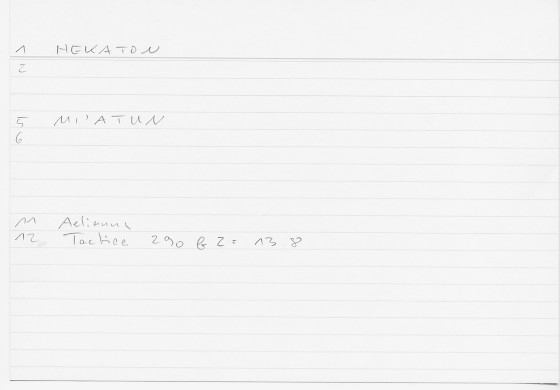 1 HEKATON
2
5 MI'ATUN
6
11 Aelianus
12 Tactica 290 & Z = 13 8